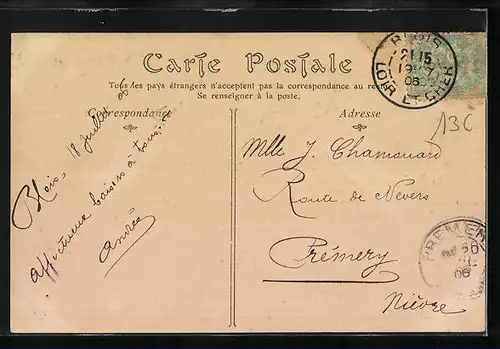 Carte Postale
Tous les pays étrangers n'acceptent pas la correspondance au re
Se renseigner à la poste.
Correspondance
Adresse
Blois, 18 Juillet 06
affectueux baisers à tous
André
Mlle J. Chamouard
Route de Nevers
Prémery
Nièvre
BLOIS
21 15
19 -7
06
LOIR ET CHER
136
PREMERY
06